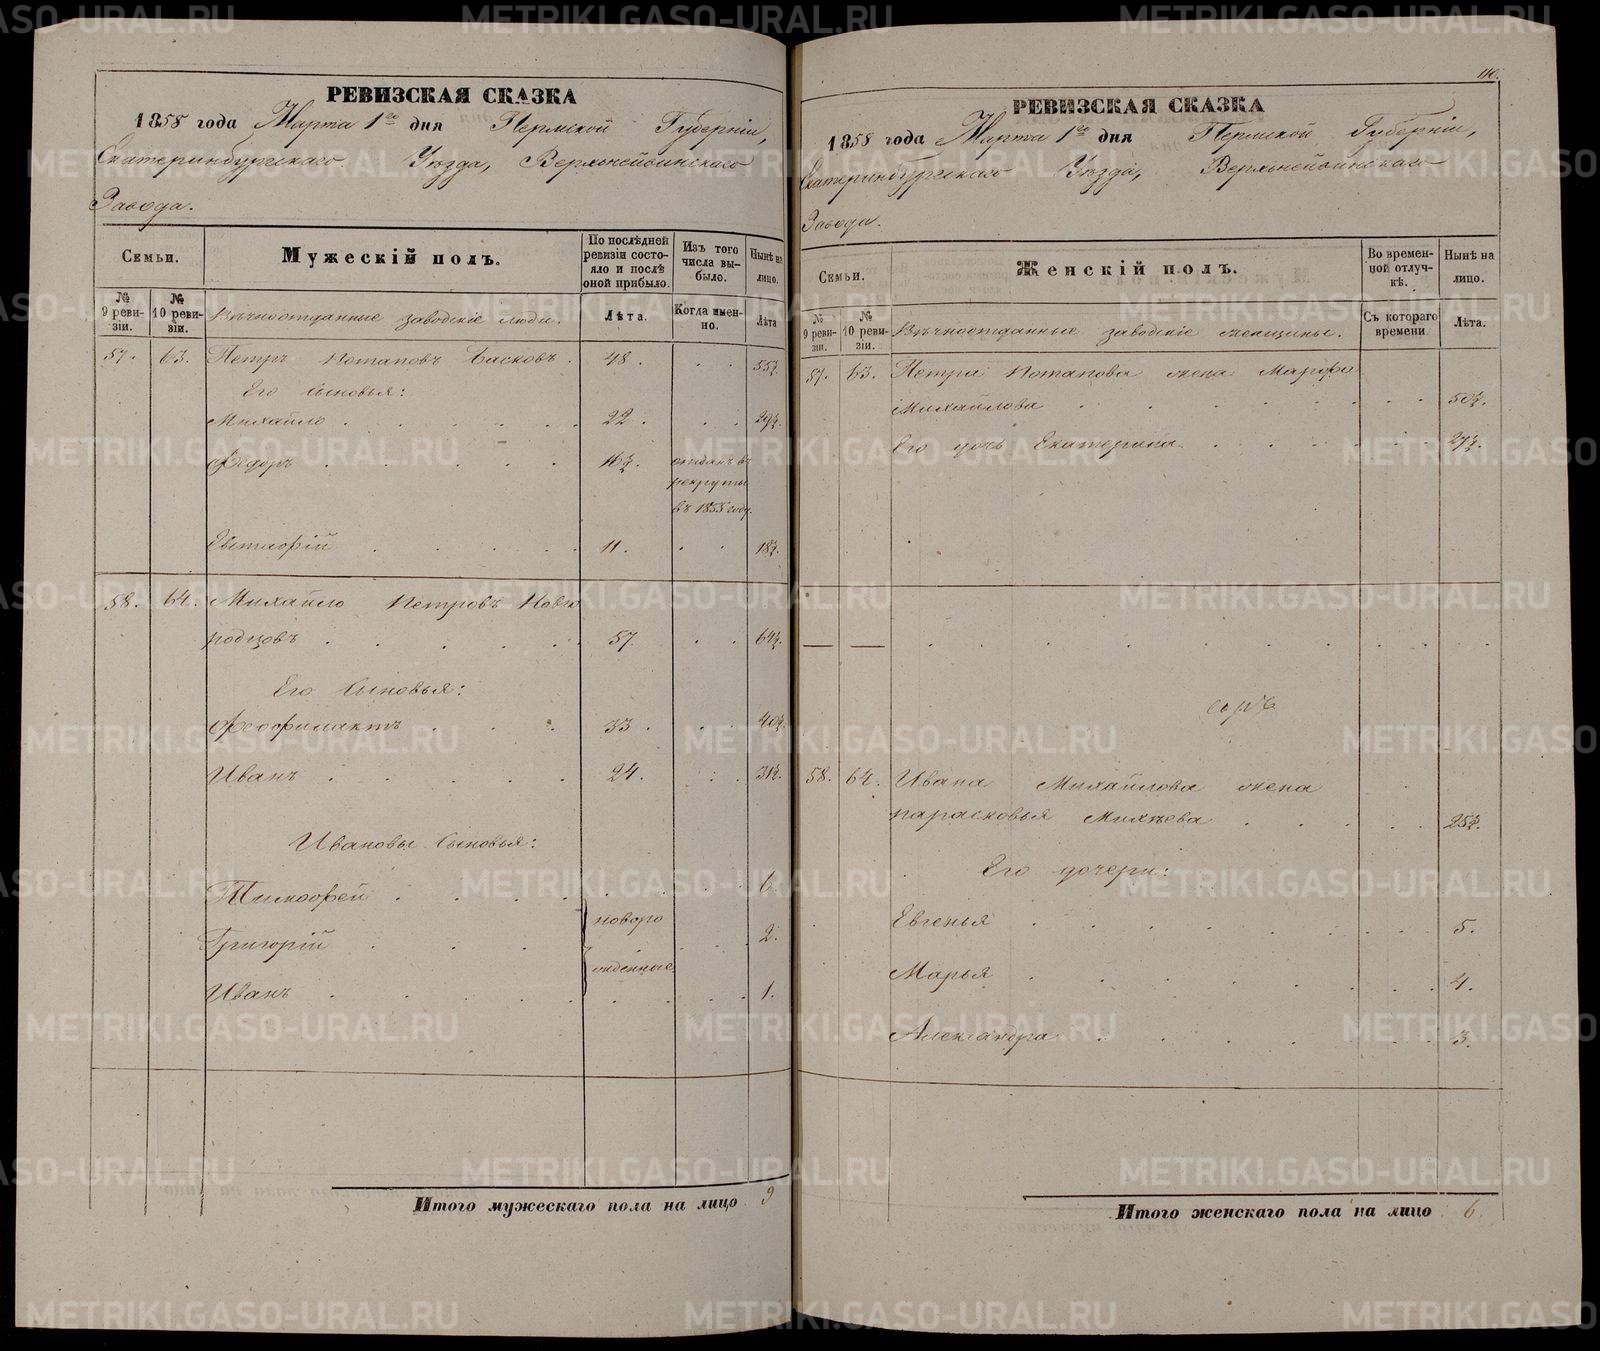 РЕВИЗСКАЯ СКАЗКА
1858 года Марта 1го дня Пермской Губерніи,
Екатеринбургскаго Уѣзда, Верхнейвинскаго
Завода.
Семьи.
Мужескій полъ.
По послѣдней ревизіи состояло и послѣ оной прибыло.
Изъ того числа выбыло.
Нынѣ на лицо.
№ 9 ревизіи.
№ 10 ревизіи.
Вѣчноотданные заводскіе люди.
Лѣта.
Когда именно.
Лѣта
57. 63. Петръ Потаповъ Басковъ. 48. 55½.
Его Сыновья:
Михайло 22. 29½.
Ѳедоръ 16½. отданъ въ
рекруты
въ 1855 году.
Евстафій 11. 18½.
58. 64. Михайло Петровъ Новго
родцовъ 57. 64½.
Его Сыновья:
Ѳеофилактъ 33. 40½.
Иванъ 24. 31½.
Ивановы Сыновья:
Тимоофей 6.
новоро
Григорій 2.
жденные
Иванъ 1.
Итого мужескаго пола на лицо 9
110.
РЕВИЗСКАЯ СКАЗКА
1858 года Марта 1го дня Пермской Губерніи,
Екатеринбургскаго Уѣзда, Верхнейвинскаго
Завода.
Семьи.
Женскій полъ.
Во временной отлучкѣ.
Нынѣ на лицо.
№ 9 ревизіи.
№ 10 ревизіи.
Вѣчноотданные заводскіе женщины.
Съ котораго времени
Лѣта.
57. 63. Петра Потапова жена Марфа
Михайлова 50½.
Его дочь Екатерина 27½.
58. 64. Ивана Михайлова жена
Парасковья Михѣева 25½.
Его дочери:
Евгенья 5.
Марья 4.
Александра 3.
Итого женскаго пола на лицо 6.
METRIKI.GASO-URAL.RU